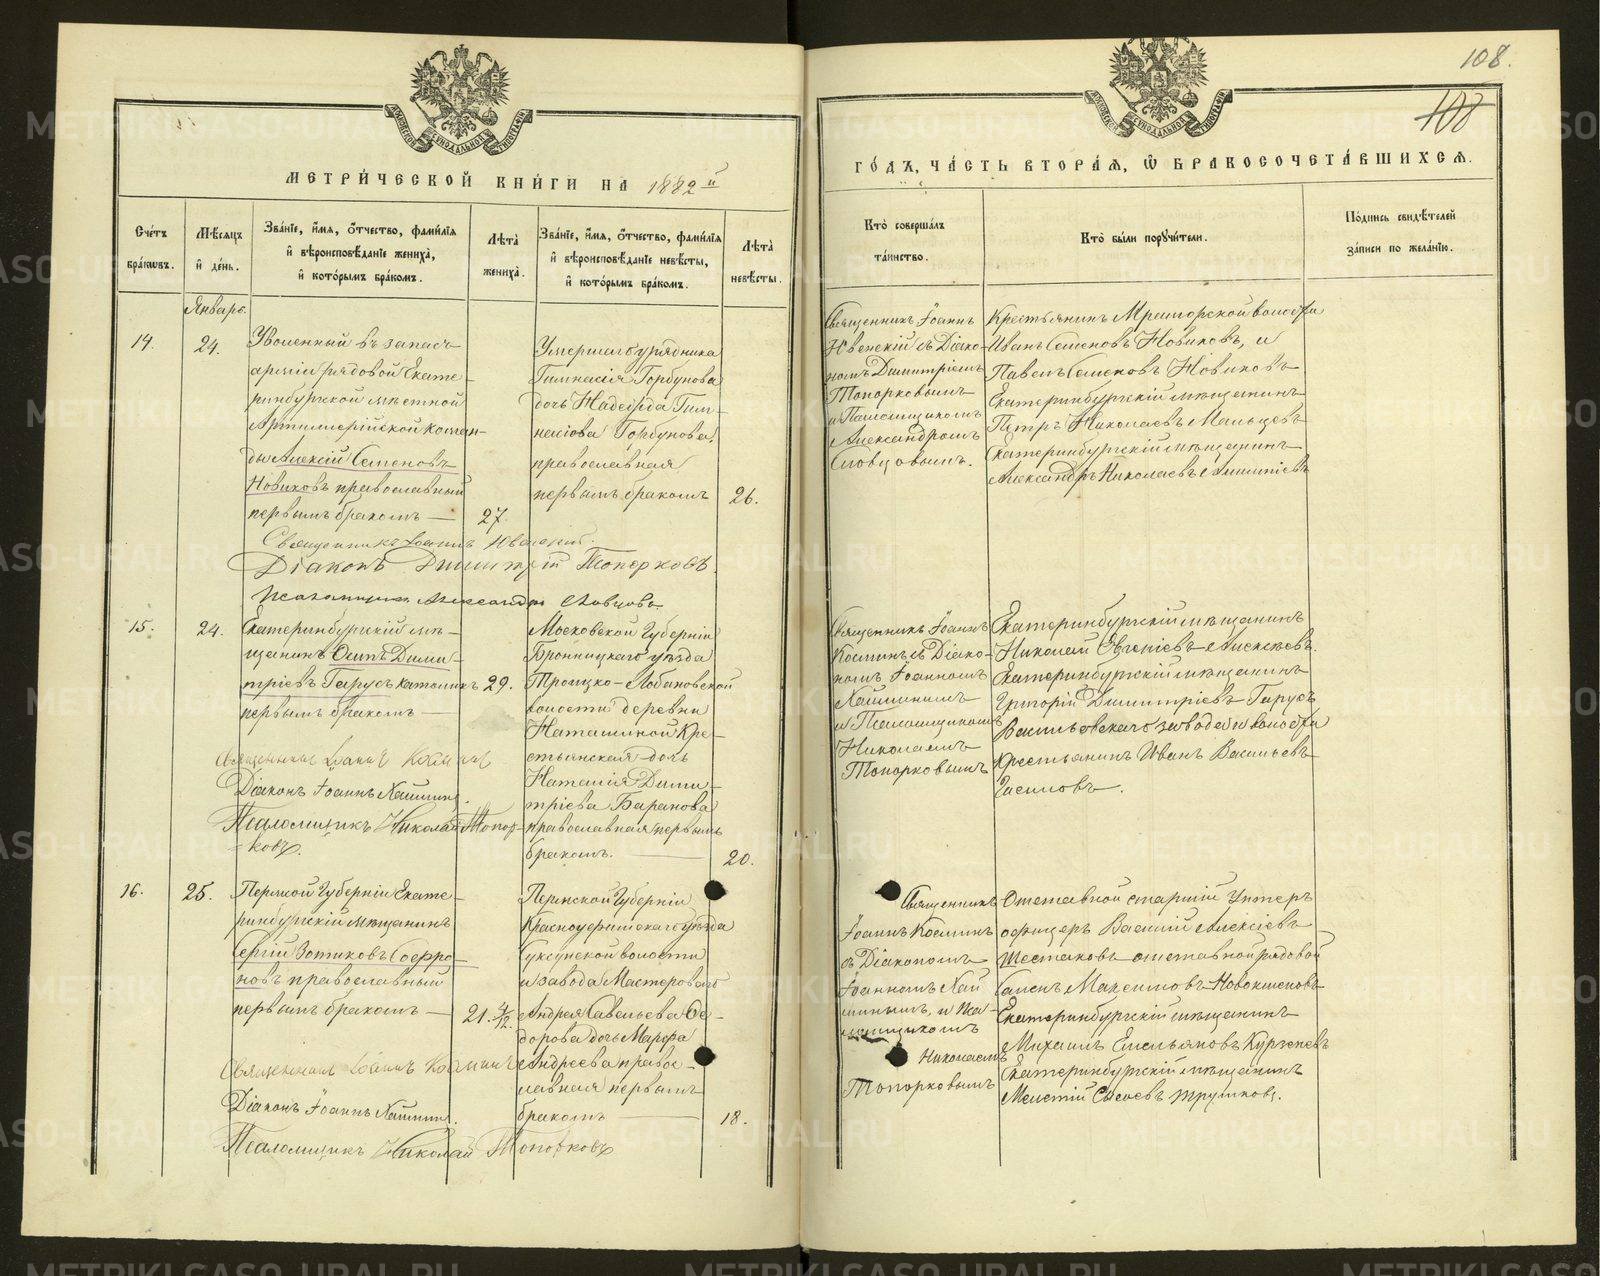 108.
108
МЕТРИ́ЧЕСКОЙ КНИ́ГИ НА 1882й
ГО́ДЪ, ЧА́СТЬ ВТОРА́Я, Ѽ БРАКОСОЧЕТА́ВШИХСЯ.
Сче́тъ бра́кѡвъ.
Мѣ́сяцъ и҆ де́нь.
Зва́нїе, и҆́мя, ѻ҆́тчество, фами́лїя и҆ вѣроисповѣ́данїе жениха̀, и҆ кото́рымъ бра́комъ.
Лѣ́та̀ жениха̀.
Зва́нїе, и҆́мя, ѻ҆́тчество, фами́лїя и҆ вѣроисповѣ́данїе невѣ́сты, и҆ кото́рымъ бра́комъ.
Лѣ́та̀ невѣ́сты.
Кто̀ соверша́лъ та́инство.
Кто̀ бы́ли порꙋчи́тели.
По́дпись свидѣ́телей за́писи по жела́нїю.
Январь.
14.
24.
Уволенный въ запасъ
арміи рядовой Екате-
ринбургской мѣстной
Артиллерійской коман-
ды Алексій Семеновъ
Новиковъ православный
первымъ бракомъ —
27.
Умершаго урядника
Гимнасія Горбунова
дочь Надежда Гим-
насіова Горбунова,
православная
первымъ бракомъ
26.
Священникъ Іоаннъ
Ювенскій съ Діако-
номъ Димитріемъ
Топорковымъ
и Псаломщикомъ
Александромъ
Словцовымъ.
Крестьянинъ Мраморской волости
Иванъ Семеновъ Новиковъ, и
Павелъ Семеновъ Новиковъ
Екатеринбургскій мѣщанинъ
Петръ Николаевъ Мальцевъ
Екатеринбургскій мѣщанинъ
Александръ Николаевъ
Священникъ Іоаннъ Ювенскій.
Діаконъ Димитрій Топорковъ.
Псаломщикъ Александръ Словцовъ
15.
24.
Екатеринбургскій мѣ-
щанинъ Осипъ Дими-
тріевъ Гарусъ католикъ
первымъ бракомъ —
29.
Московской Губерніи
Бронницкаго уѣзда
Троицко-Лобановской
волости деревни
Наташиной Кре-
стьянская дочь
Наталія Дими-
тріева Баранова
православная первымъ
бракомъ. —
20.
Священникъ Іоаннъ
Косминъ съ Діако-
номъ Іоанномъ
Кашинымъ
и Псаломщикомъ
Николаемъ
Топорковымъ
Екатеринбургскій мѣщанинъ
Николай Евгеніевъ Алексѣевъ.
Екатеринбургскій мѣщанинъ
Григорій Димитріевъ Гарусъ
Васильевскаго завода и волости
крестьянинъ Иванъ Васильевъ
Священникъ Іоаннъ Косминъ
Діаконъ Іоаннъ Кашинъ.
Псаломщикъ Николай Топор-
ковъ.
16.
25.
Пермской Губерніи Екате-
ринбургскій мѣщанинъ
Сергій Зотиковъ Софро-
новъ православный
первымъ бракомъ —
21. 4/12.
Пермской Губерніи
Красноуфимскаго уѣзда
Суксунской волости
и завода Мастероваго
Андрея Савельева Ѳе-
дорова дочь Марѳа
Андреева право-
славная первымъ
бракомъ —
18.
Священникъ
Іоаннъ Косминъ
съ Діакономъ
Іоанномъ Каш
инымъ, и Пса-
ломщикомъ
Николаемъ
Топорковымъ
Отставной старшій Унтеръ
офицеръ Василій Алексіевъ
Шестаковъ отставной рядовой
Максимовъ Новокшеновъ
Екатеринбургскій мѣщанинъ
Михаилъ Емельяновъ
Екатеринбургскій мѣщанинъ
Мелетій Сысоевъ Трушковъ.
Священникъ Іоаннъ Косминъ
Діаконъ Іоаннъ Кашинъ.
Псаломщикъ Николай Топорковъ